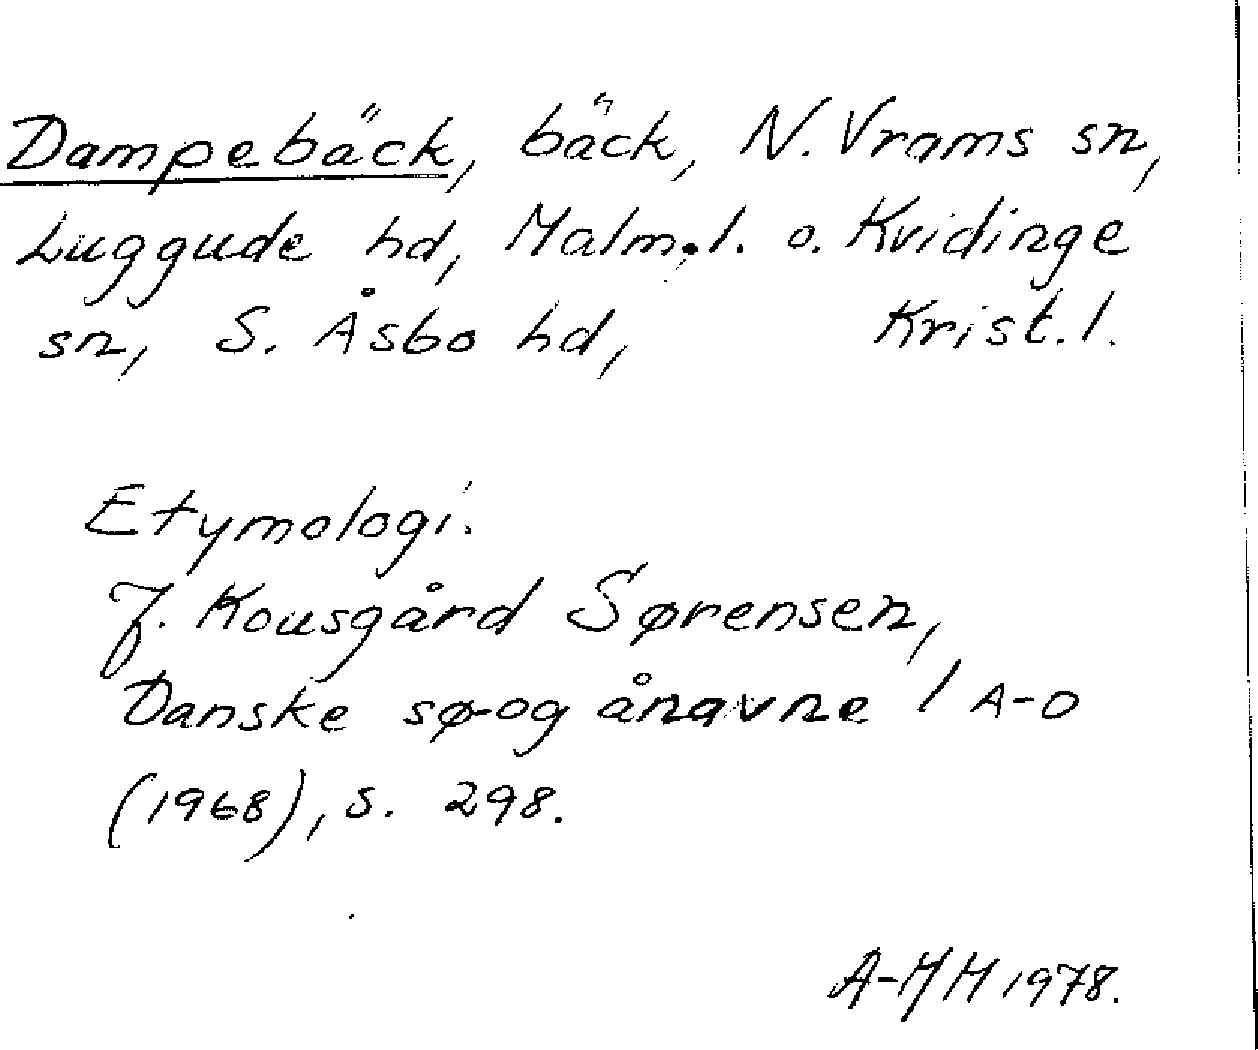 Dampebäck, bäck, N. Vrams sn,
Luggude hd, Malm.l. o. Kvidinge
sn, S. Åsbo hd, Krist.l.
Etymologi:
J. Kousgård Sørensen,
Danske sø-og ånavne 1 A-D
(1968), s. 298.
A-MH 1978.